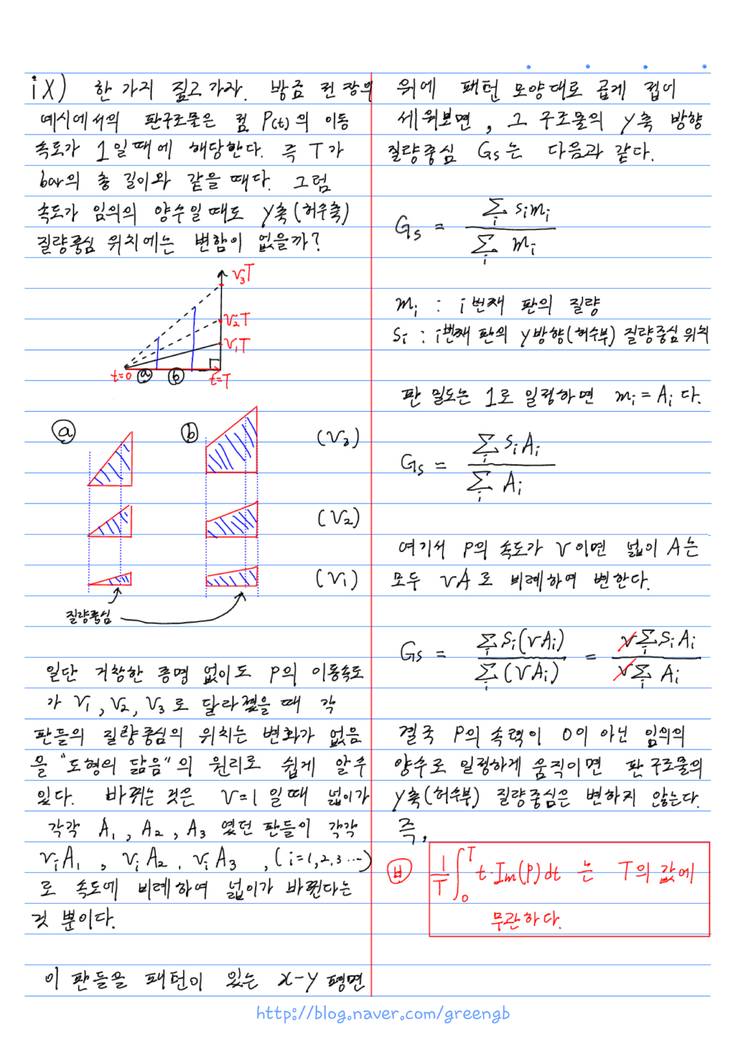 ix) 한 가지 짚고 가자. 방금 전 장의
예시에서의 판구조물은 점 P(t)의 이동
속도가 1일 때에 해당한다. 즉 T가
bar의 총 길이와 같을 때다. 그럼
속도가 임의의 양수일 때도 y축(허수축)
질량중심 위치에는 변함이 없을까?
v₃T
v₂T
v₁T
t=0 ⓐ ⓑ t=T
ⓐ ⓑ (v₃)
(v₂)
(v₁)
질량중심
일단 거창한 증명 없이도 P의 이동속도
가 v₁, v₂, v₃로 달라졌을 때 각
판들의 질량중심의 위치는 변화가 없음
을 "도형의 닮음"의 원리로 쉽게 알 수
있다. 바뀌는 것은 v=1일 때 넓이가
각각 A₁, A₂, A₃였던 판들이 각각
vᵢA₁, vᵢA₂, vᵢA₃, (i=1,2,3…)
로 속도에 비례하여 넓이가 바뀐다는
것 뿐이다.
이 판들을 패턴이 있는 x-y 평면
위에 패턴 모양대로 곱게 접어
세워보면, 그 구조물의 y축 방향
질량중심 Gs는 다음과 같다.
Gs = Σᵢ sᵢmᵢ / Σᵢ mᵢ
mᵢ : i번째 판의 질량
sᵢ : i번째 판의 y방향(허수부) 질량중심 위치
판 밀도는 1로 일정하면 mᵢ = Aᵢ다.
Gs = Σᵢ sᵢAᵢ / Σᵢ Aᵢ
여기서 P의 속도가 v이면 넓이 A는
모두 vA로 비례하여 변한다.
Gs = Σᵢ sᵢ(vAᵢ) / Σᵢ (vAᵢ) = vΣᵢ sᵢAᵢ / vΣᵢ Aᵢ
결국 P의 속력이 0이 아닌 임의의
양수로 일정하게 움직이면 판 구조물의
y축(허수부) 질량중심은 변하지 않는다.
즉,
㉥ 1/T ∫₀ᵀ t·Im(P)dt 는 T의 값에
무관하다.
http://blog.naver.com/greengb